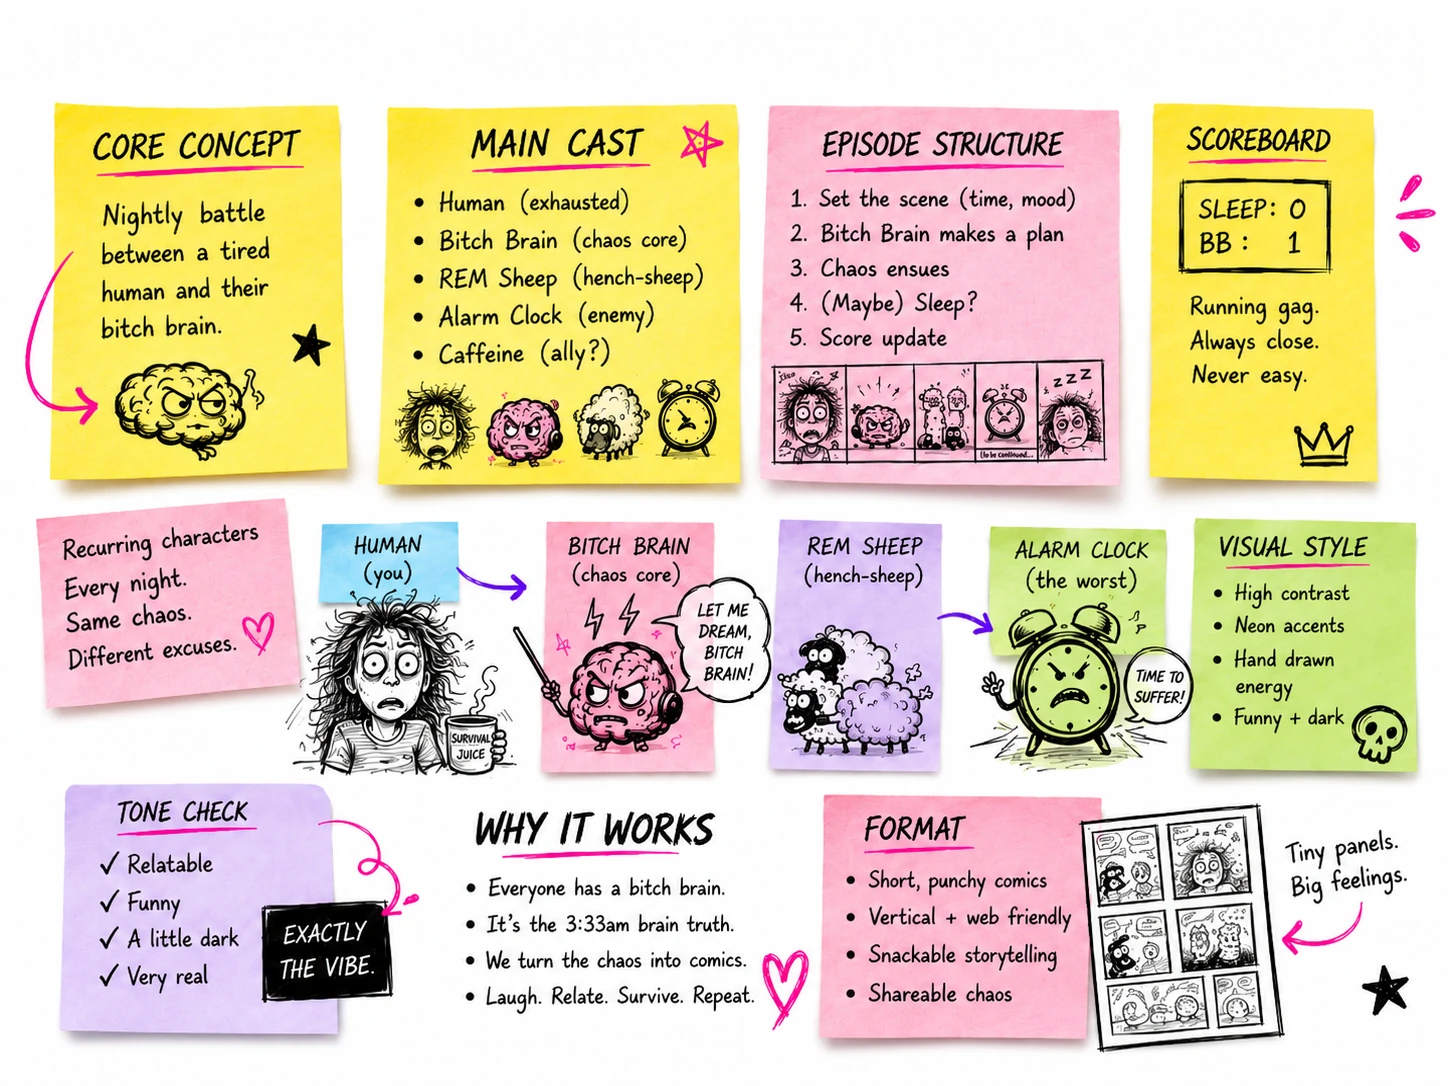 CORE CONCEPT
Nightly battle
between a tired
human and their
bitch brain.
MAIN CAST
• Human (exhausted)
• Bitch Brain (chaos core)
• REM Sheep (hench-sheep)
• Alarm Clock (enemy)
• Caffeine (ally?)
EPISODE STRUCTURE
1. Set the scene (time, mood)
2. Bitch Brain makes a plan
3. Chaos ensues
4. (Maybe) Sleep?
5. Score update
(to be continued...
z z z
SCOREBOARD
SLEEP: 0
BB : 1
Running gag.
Always close.
Never easy.
Recurring characters
Every night.
Same chaos.
Different excuses.
HUMAN
(you)
SURVIVAL
JUICE
BITCH BRAIN
(chaos core)
LET ME
DREAM,
BITCH
BRAIN!
REM SHEEP
(hench-sheep)
ALARM CLOCK
(the worst)
TIME TO
SUFFER!
VISUAL STYLE
• High contrast
• Neon accents
• Hand drawn
energy
• Funny + dark
TONE CHECK
✓ Relatable
✓ Funny
✓ A little dark
✓ Very real
EXACTLY
THE VIBE.
WHY IT WORKS
• Everyone has a bitch brain.
• It's the 3:33am brain truth.
• We turn the chaos into comics.
• Laugh. Relate. Survive. Repeat.
FORMAT
• Short, punchy comics
• Vertical + web friendly
• Snackable storytelling
• Shareable chaos
Tiny panels.
Big feelings.